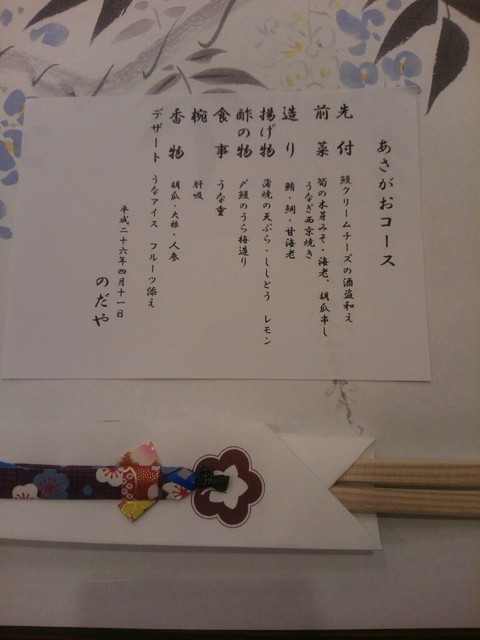 あさがおコース
先付 鰻クリームチーズの酒盗和え
前菜 筍の木芽みそ・海老、胡瓜串し
うなぎ西京焼き
造り 鮪・鯛・甘海老
揚げ物 蒲焼の天ぷら・ししとう レモン
酢の物 〆鰻のうら梅造り
食事 うな重
椀 肝吸
香物 胡瓜・大根・人参
デザート うなアイス フルーツ添え
平成二十六年四月十一日
のだや